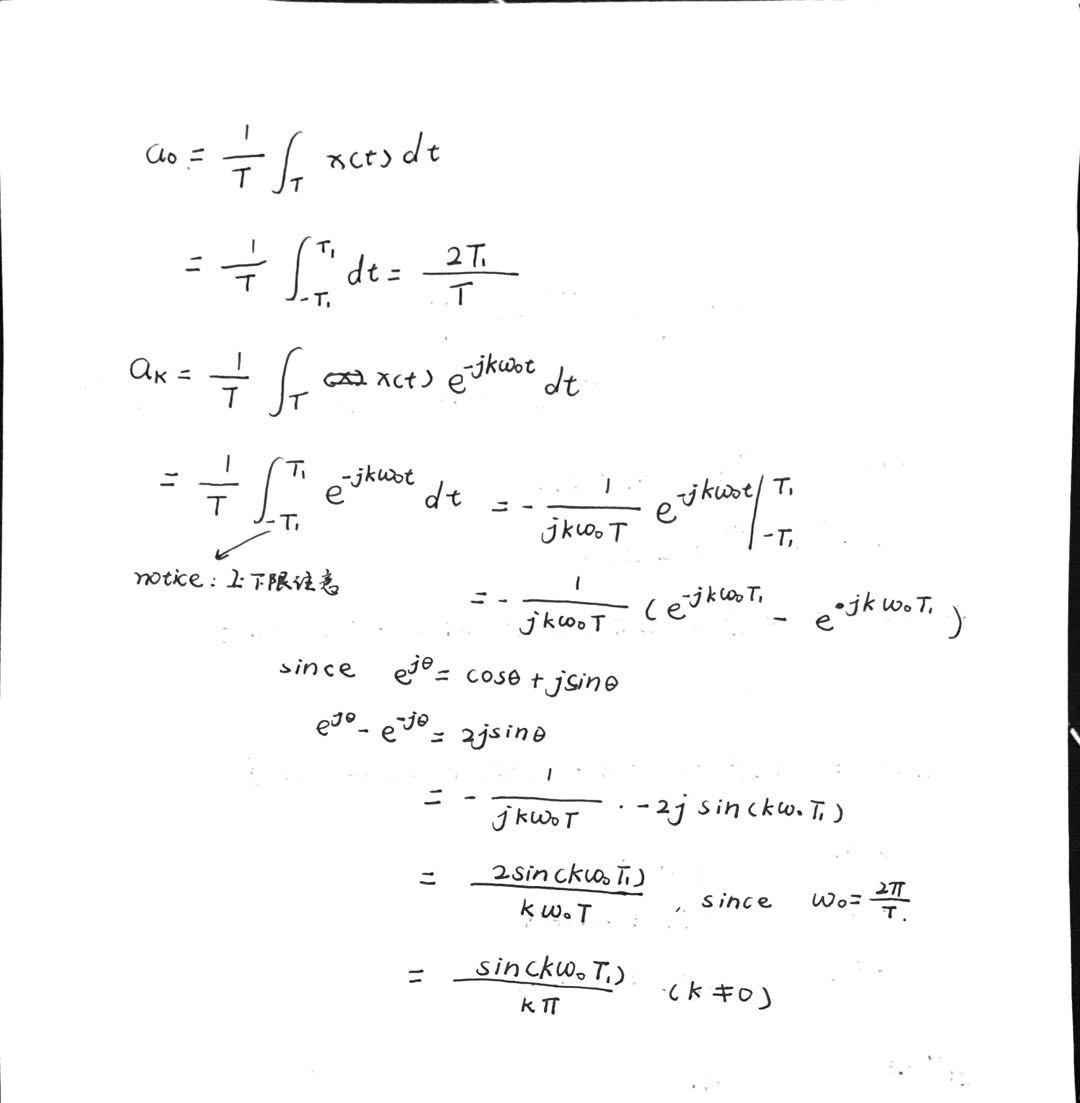 a₀ = 1/T ∫_T x(t) dt
= 1/T ∫_{-T₁}^{T₁} dt = 2T₁/T
aₖ = 1/T ∫_T x(t) e^{-jkω₀t} dt
= 1/T ∫_{-T₁}^{T₁} e^{-jkω₀t} dt = - 1/(jkω₀T) e^{-jkω₀t} |_{-T₁}^{T₁}
notice: 上下限注意
= - 1/(jkω₀T) (e^{-jkω₀T₁} - e^{jkω₀T₁})
since e^{jθ} = cosθ + jsinθ
e^{jθ} - e^{-jθ} = 2jsinθ
= - 1/(jkω₀T) · -2j sin(kω₀T₁)
= 2sin(kω₀T₁)/(kω₀T) , since ω₀ = 2π/T
= sin(kω₀T₁)/(kπ) (k≠0)